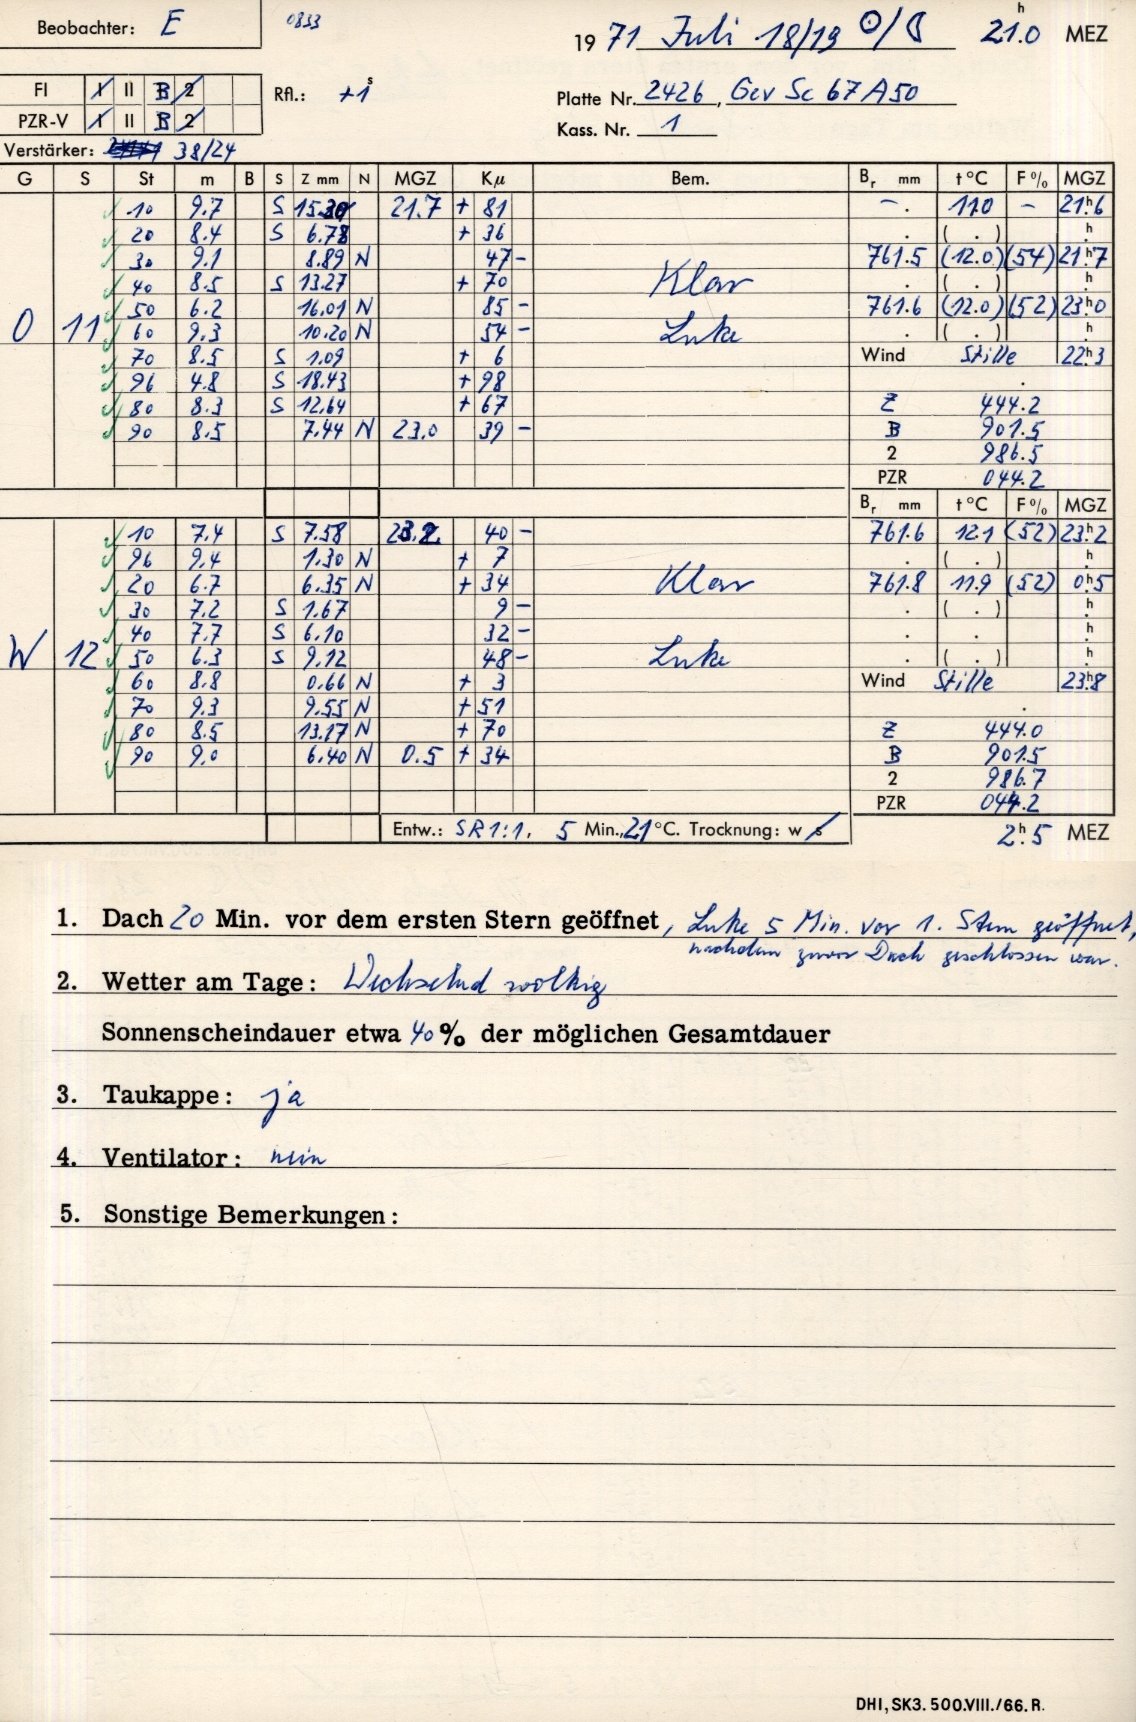 Beobachter: E 0833
19 71 Juli 18/19 ☉/☾ 21.0 h MEZ
FI I II B 2 Rfl.: +1 s
Platte Nr. 2426, Gev Sc 67 A 50
PZR-V I II B 2
Kass. Nr. 1
Verstärker: 38/24
G S St m B S Z mm N MGZ Kμ Bem. Br mm t °C F % MGZ
10 9.7 S 15.30 21.7 + 81 –. 11.0 – 21h6
20 8.4 S 6.78 + 36 . ( . ) h
30 9.1 8.89 N 47 – 761.5 (12.0) (54) 21h7
40 8.5 S 13.27 + 70 Klar . ( . ) h
50 6.2 16.01 N 85 – 761.6 (12.0) (52) 23h0
O 11 60 9.3 10.20 N 54 – Luke . ( . ) h
70 8.5 S 1.09 + 6 Wind Stille 22h3
96 4.8 S 18.43 + 98 .
80 8.3 S 12.64 + 67 Z 444.2
90 8.5 7.44 N 23.0 39 – B 901.5
2 986.5
PZR 044.2
Br mm t °C F % MGZ
10 7.4 S 7.58 23.2 40 – 761.6 12.1 (52) 23h2
96 9.4 1.30 N + 7 . ( . ) h
20 6.7 6.35 N + 34 Klar 761.8 11.9 (52) 0h5
30 7.2 S 1.67 9 – . ( . ) h
40 7.7 S 6.10 32 – . . h
W 12 50 6.3 S 9.12 48 – Luke . ( . ) h
60 8.8 0.66 N + 3 Wind Stille 23h8
70 9.3 9.55 N + 51 .
80 8.5 13.17 N + 70 Z 444.0
90 9.0 6.40 N 0.5 + 34 B 901.5
2 986.7
PZR 044.2
Entw.: SR 1:1, 5 Min., 21 °C. Trocknung: w s 2h5 MEZ
1. Dach 20 Min. vor dem ersten Stern geöffnet, Luke 5 Min. vor 1. Stern geöffnet,
nachdem zuvor Dach geschlossen war.
2. Wetter am Tage: Wechselnd wolkig
Sonnenscheindauer etwa 40 % der möglichen Gesamtdauer
3. Taukappe: ja
4. Ventilator: nein
5. Sonstige Bemerkungen:
DHI, SK3. 500.VIII./66. R.